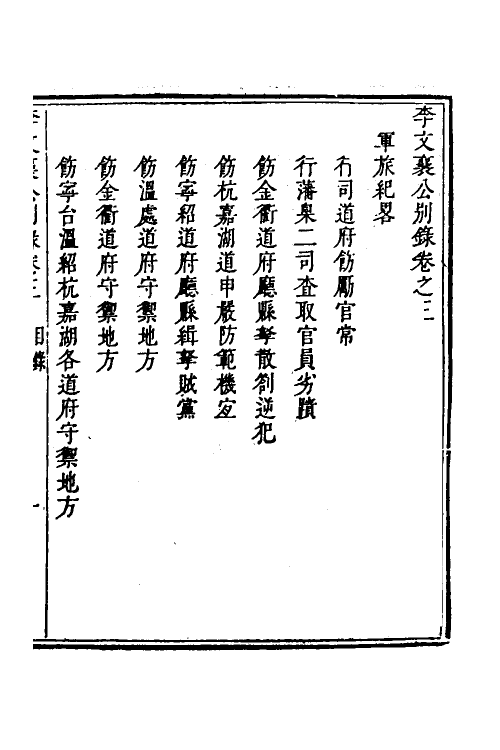 李文襄公别錄卷之三
軍旅紀畧
行司道府飭勵官常
行藩臬二司查取官員劣蹟
飭金衢道府廳縣拏散劄逆犯
飭杭嘉湖道申嚴防範機宜
飭寧紹道府廳縣緝拏賊黨
飭溫處道府守禦地方
飭金衢道府守禦地方
飭寧台溫紹杭嘉湖各道府守禦地方
李文襄公别錄卷三 目錄 一